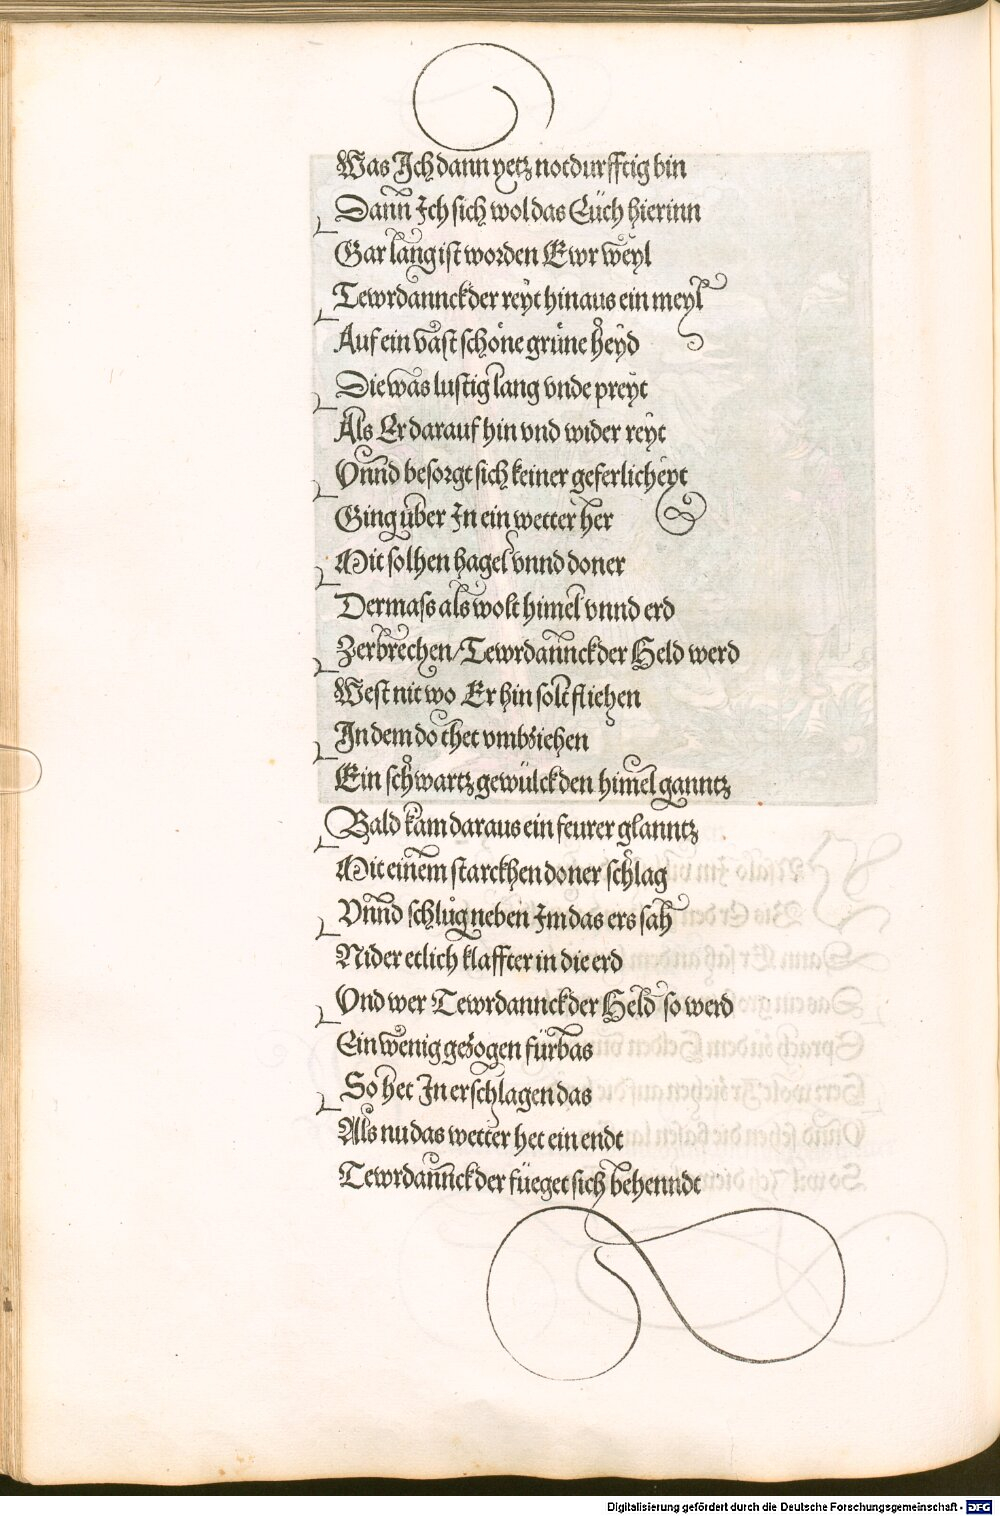 Was Ich dann yetz notdurfftig bin
Dann Ich sich wol das Eüch hierinn
Gar lang ist worden Ewr weyl
Tewrdannck der reyt hinaus ein meyl
Auf ein vast schöne grüne heyd
Die was lustig lang vnde preyt
Als Er darauf hin vnd wider reyt
Vnnd besorgt sich keiner geferlicheyt
Ging über In ein wetter her
Mit solhen hagel vnnd doner
Dermass als wolt himel vnnd erd
Zerbrechen/Tewrdannck der Held werd
West nit wo Er hin solt fliehen
In dem do thet vmbziehen
Ein schwartz gewülck den himel ganntz
Bald kam daraus ein feurer glanntz
Mit einem starckhen doner schlag
Vnnd schlůg neben Im das ers sah
Nider etlich klaffter in die erd
Vnd wer Tewrdannck der Held so werd
Ein wenig gezogen fürbas
So het In erschlagen das
Als nu das wetter het ein endt
Tewrdannck der füeget sich behenndt
Digitalisierung gefördert durch die Deutsche Forschungsgemeinschaft - DFG